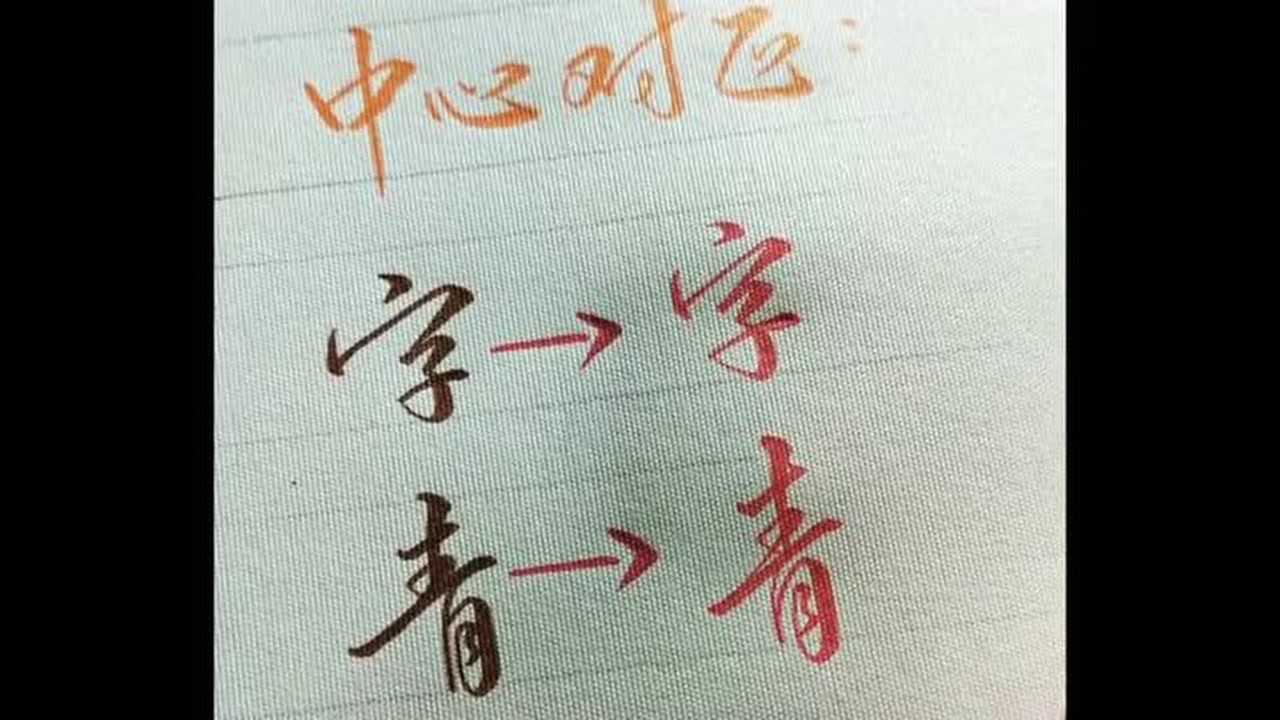 中心对正:
字→字
青→青